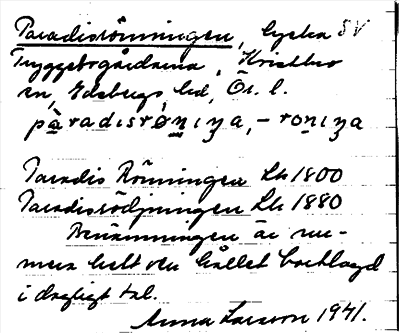 Paradisrönningen, lycka SV
Tryggebogårdarna, Kristbro
sn, Ydsbergs hd, Ög. l.
pàradisrøniŋa, – roniŋa
Paradis Rönningen Lh 1800
Paradisrödjningen Lh 1880
Benämningen är nu-
mera helt ur hållet bortlagd
i dagligt tal.
Anna Larsson 1941.